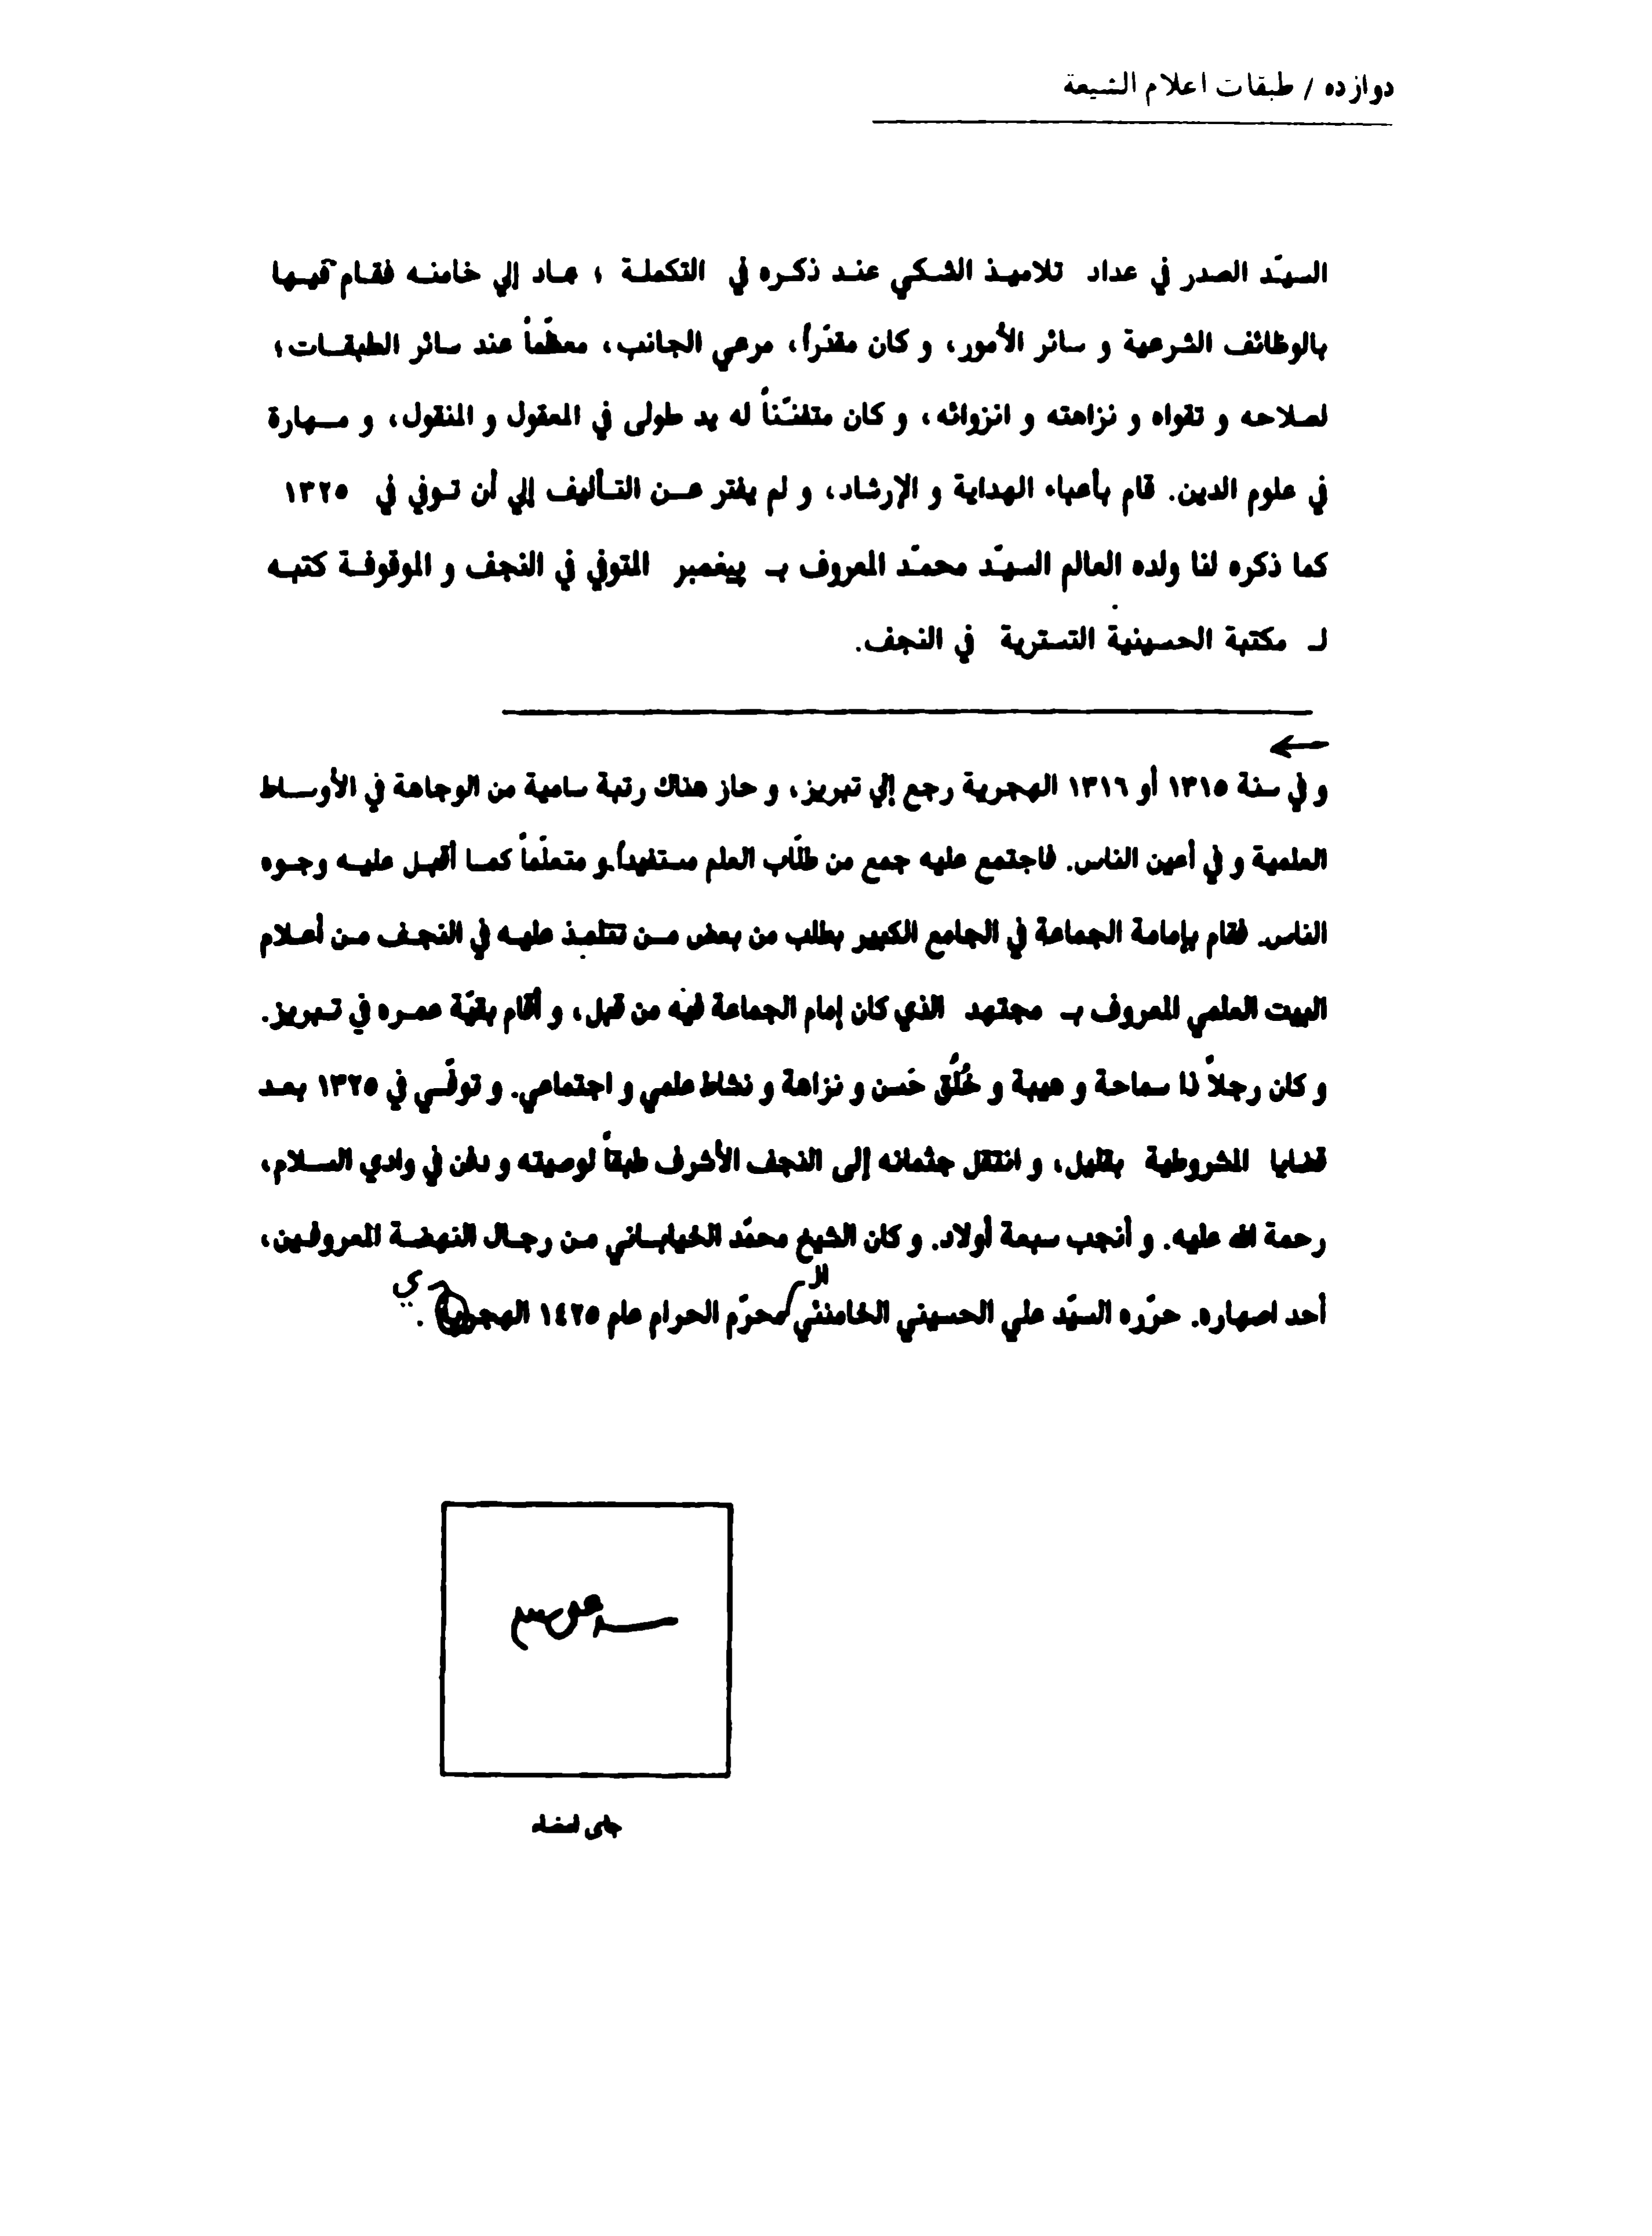 دوازده / طبقات اعلام الشيعة
السيّد الصدر في عداد تلاميذ الشكي عند ذكره في التكملة ؛ عاد إلي خامنه فقام فيها
بالوظائف الشرعية و سائر الأمور، و كان مقدّراً، مرعي الجانب، معظّماً عند سائر الطبقات؛
لصلاحه و تقواه و نزاهته و انزوائه، و كان متفنّناً له يد طولى في المعقول و المنقول، و مهارة
في علوم الدين. قام بأعباء الهداية و الإرشاد، و لم يفتر عن التأليف إلي أن توفي في ١٣٢٥
كما ذكره لنا ولده العالم السيّد محمّد المعروف بـ پيغمبر المتوفي في النجف و الموقوفة كتبه
لـ مكتبة الحسينية التسترية في النجف.
←
و في سنة ١٣١٥ أو ١٣١٦ الهجرية رجع إلي تبريز، و حاز هناك رتبة سامية من الوجاهة في الأوساط
العلمية و في أعين الناس. فاجتمع عليه جمع من طلّاب العلم مستفيداً و متعلّماً كما أقبل عليه وجوه
الناس. فقام بإمامة الجماعة في الجامع الكبير بطلب من بعض من تتلمذ عليه في النجف من أعلام
البيت العلمي المعروف بـ مجتهد الذي كان إمام الجماعة فيه من قبل، و أقام بقيّة عمره في تبريز.
و كان رجلاً ذا سماحة و هيبة و خُلُق حَسن و نزاهة و نشاط علمي و اجتماعي. و توفّي في ١٣٢٥ بعد
قضايا المشروطية بقليل، و انتقل جثمانه إلى النجف الأشرف طبقاً لوصيته و دفن في وادي السلام،
رحمة الله عليه. و أنجب سبعة أولاد. و كان الشيخ محمّد الخياباني من رجال النهضة المعروفين،
أحد اصهاره. حرّره السيّد علي الحسيني الخامنئي الـ محرّم الحرام عام ١٤٢٥ الهجري .
جاى امضاء